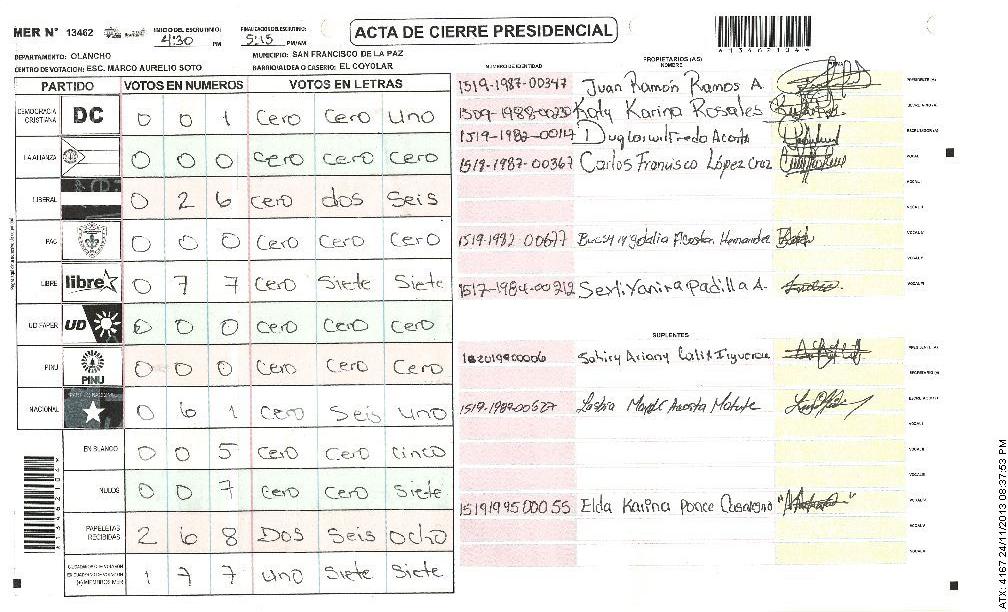 MER N° 13462
INICIO DEL ESCRUTINIO: 4:30 PM
FINALIZACION DEL ESCRUTINIO: 5:15 PM/AM
ACTA DE CIERRE PRESIDENCIAL
DEPARTAMENTO: OLANCHO
MUNICIPIO: SAN FRANCISCO DE LA PAZ
CENTRO DE VOTACION: ESC. MARCO AURELIO SOTO
BARRIO/ALDEA O CASERIO: EL COYOLAR
PARTIDO VOTOS EN NUMEROS VOTOS EN LETRAS
DEMOCRACIA CRISTIANA DC 0 0 1 Cero Cero Uno
LA ALIANZA 0 0 0 Cero Cero Cero
LIBERAL 0 2 6 Cero dos Seis
PAC 0 0 0 Cero Cero Cero
LIBRE libre 0 7 7 Cero Siete Siete
UD FAPER UD 0 0 0 Cero Cero Cero
PINU PINU 0 0 0 Cero Cero Cero
NACIONAL 0 6 1 Cero Seis uno
EN BLANCO 0 0 5 Cero Cero Cinco
NULOS 0 0 7 Cero Cero Siete
PAPELETAS RECIBIDAS 2 6 8 Dos Seis Ocho
1 7 7 uno Siete Siete
NUMERO DE IDENTIDAD
PROPIETARIOS (AS)
NOMBRE
1519-1987-00347 Juan Ramón Ramos A.
Katy Karina Rosales
Acosta
1519-1987-00367 Carlos Francisco López Cruz
1519-1992 00677 Acosta Hernandez
1517-1984-00212 Yanira Padilla A.
SUPLENTES
Ariany
1519-1989-00627 Acosta Matute
1519199500055 Elda Karina Ponce
ATX: 4167 24/11/2013 08:37:53 PM